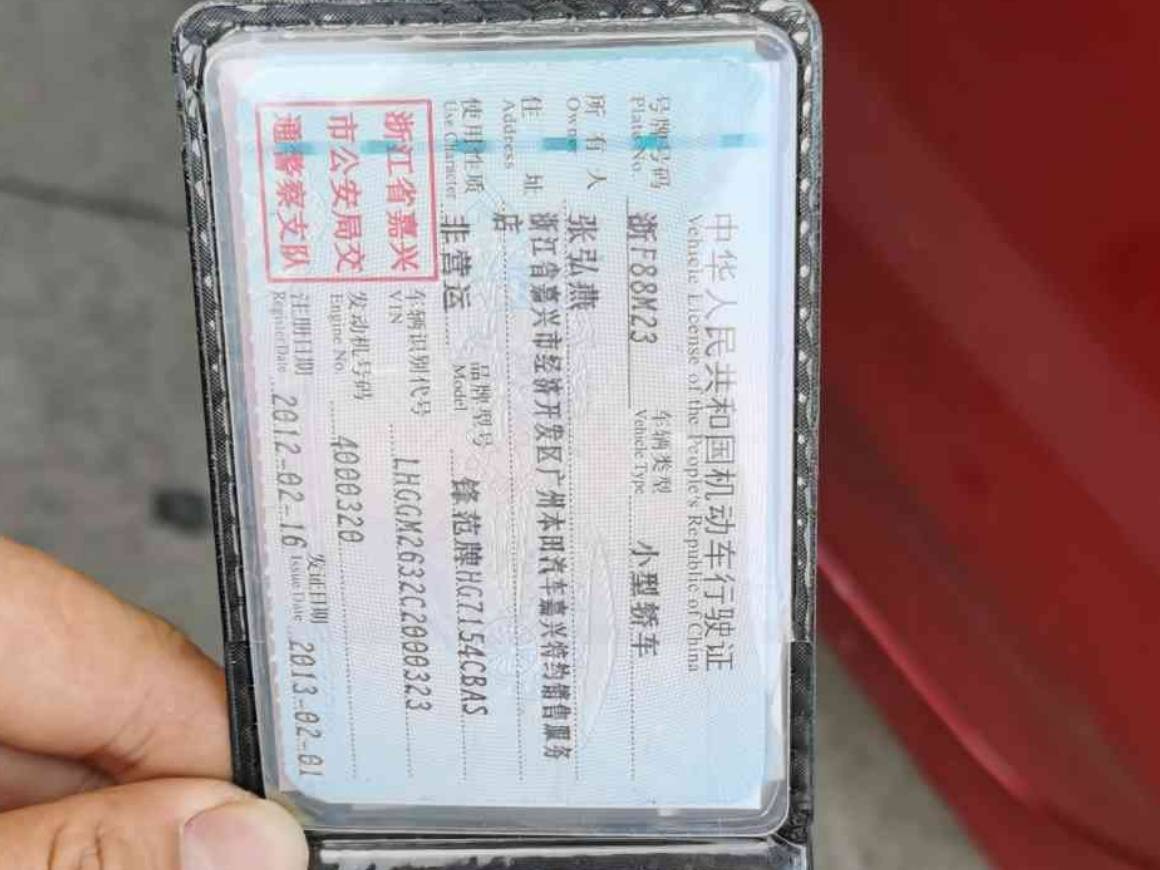 中华人民共和国机动车行驶证
Vehicle License of the People's Republic of China
号牌号码 浙F88M23 车辆类型 小型轿车
Plate No. Vehicle Type
所有人 张弘燕
Owner
住址 浙江省嘉兴市经济开发区广州本田汽车嘉兴特约销售服务
Address 店
使用性质 非营运 品牌型号 锋范牌HG7154CBAS
Use Character Model
浙江省嘉兴
市公安局交
通警察支队
车辆识别代号 LHGGM2632C2000323
VIN
发动机号码 4000320
Engine No.
注册日期 2012-02-16 发证日期 2013-02-01
Register Date Issue Date